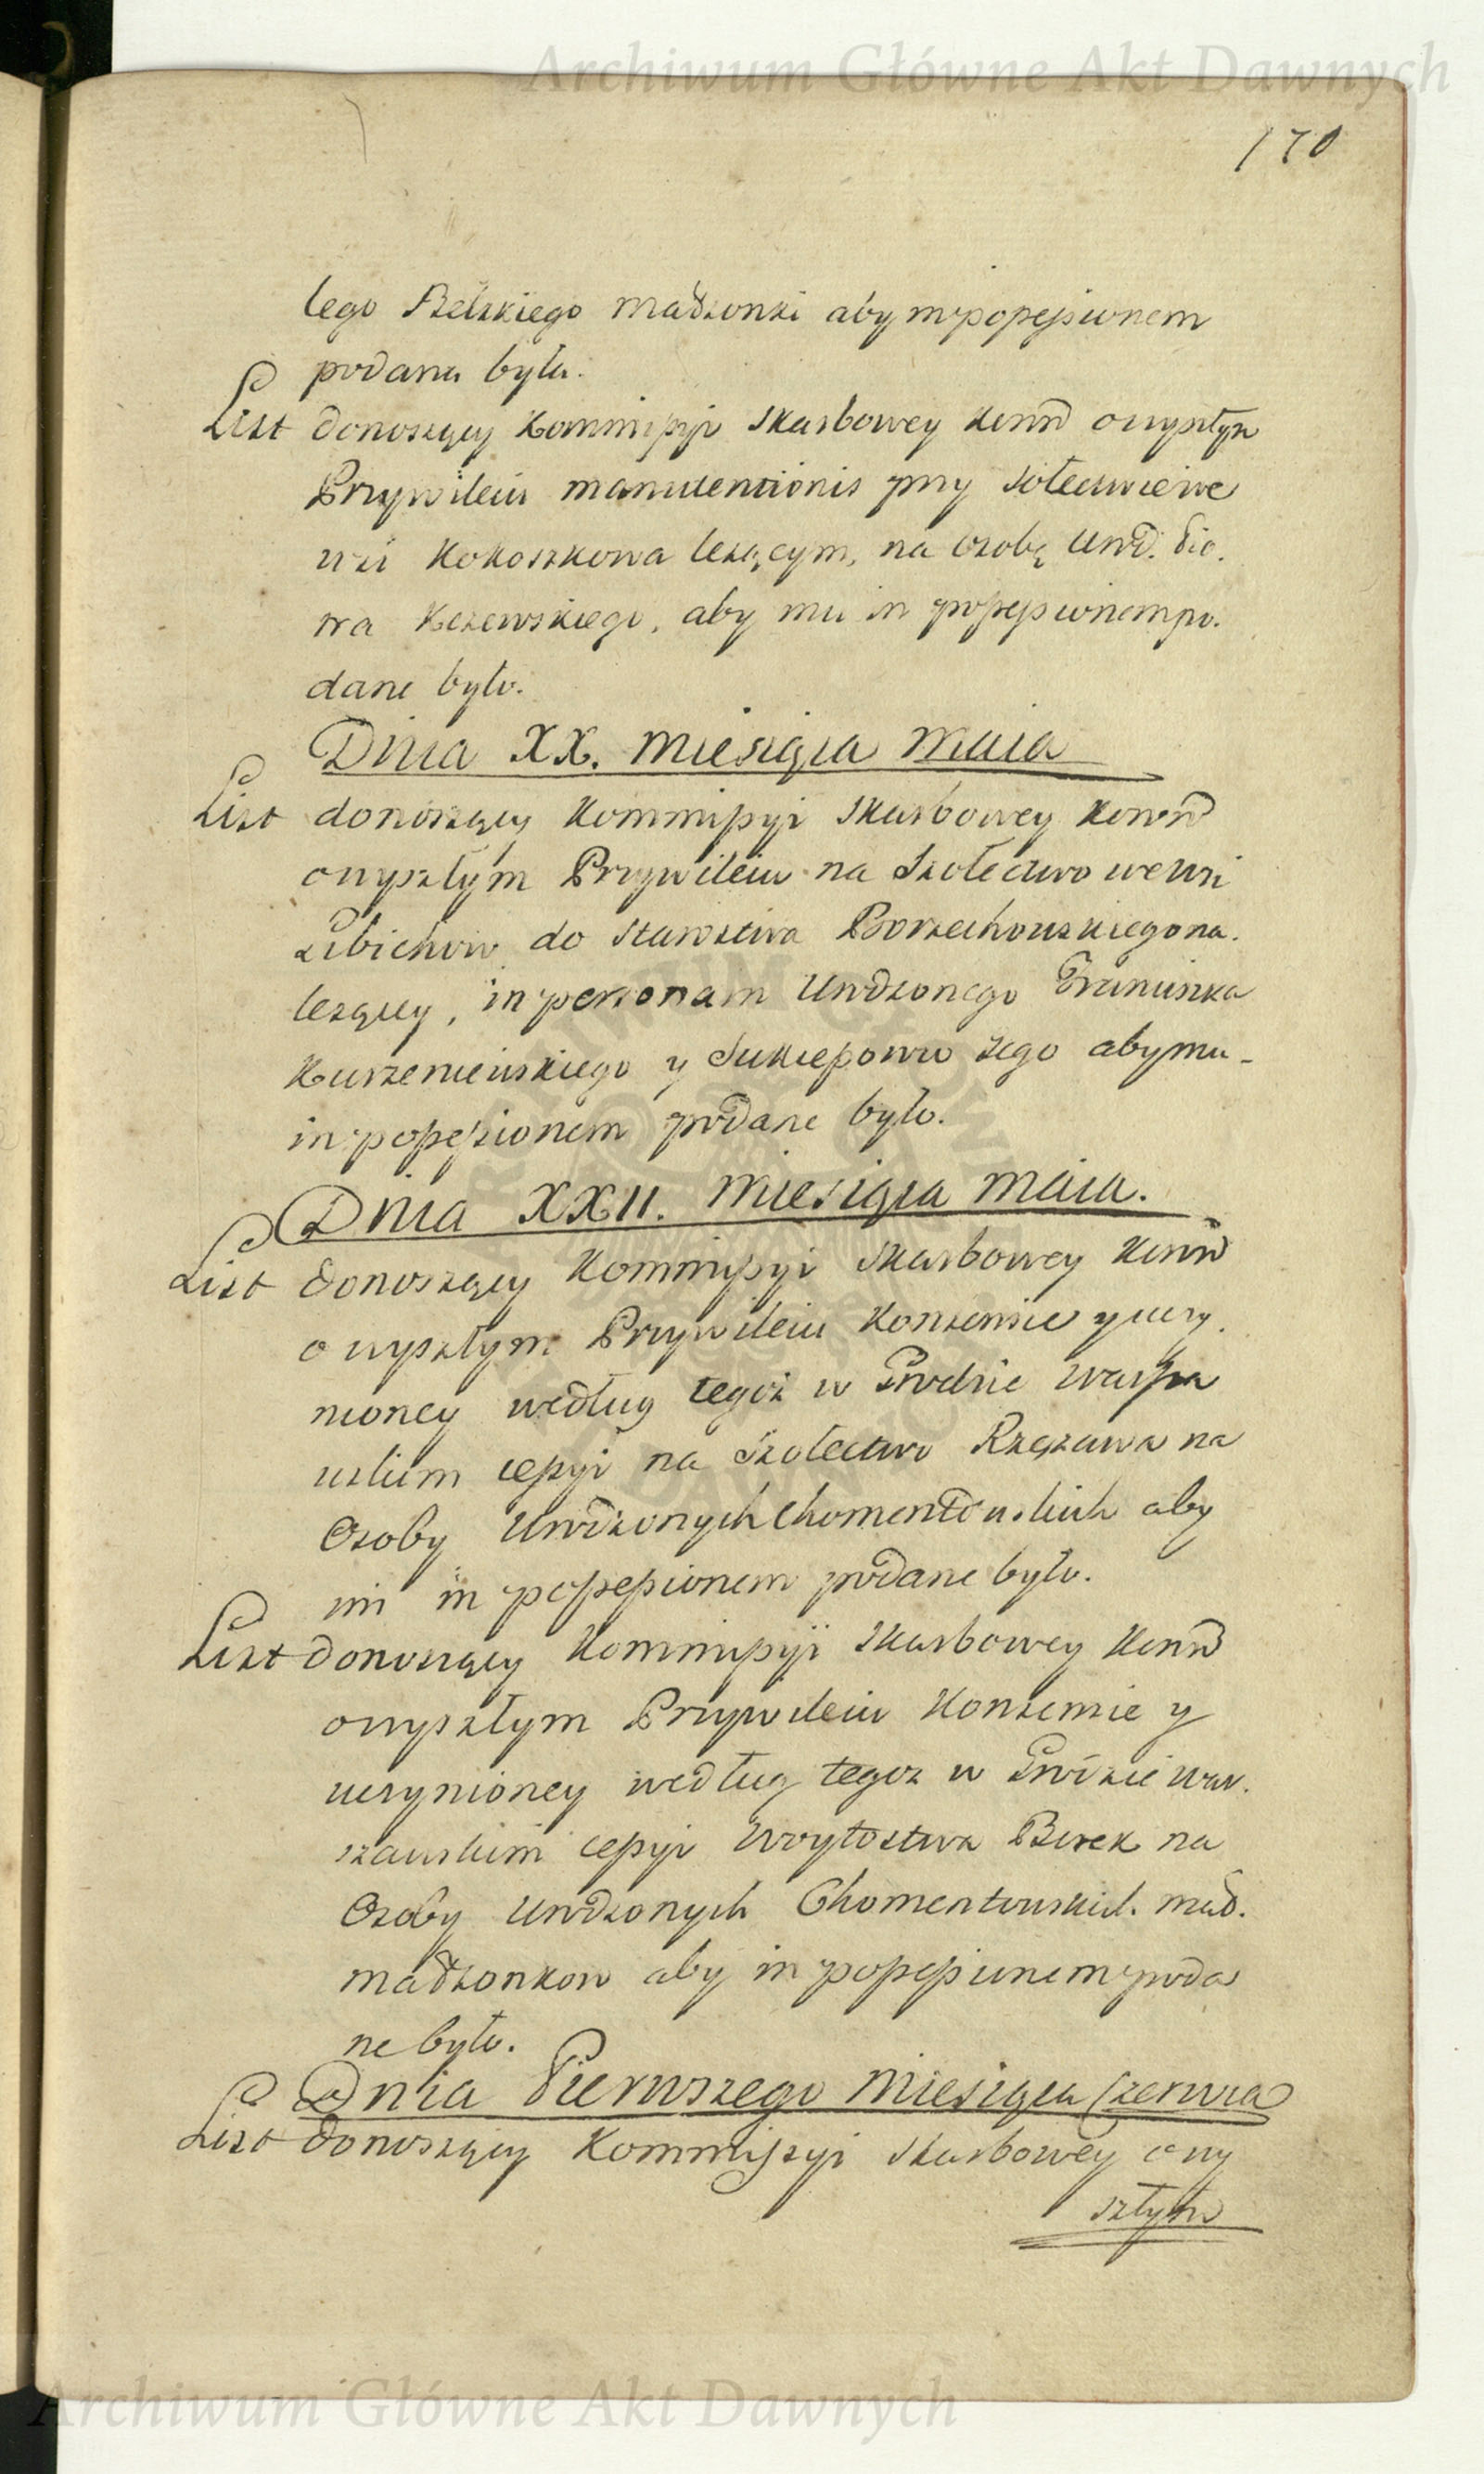 Archiwum Główne Akt Dawnych
170
lego Bielskiego małżonki aby in possessionem
podana była.
List donoszący Kommissyi Skarbowey Koron o wyszłym
Przywileiu manutentionis przy Sołectwie we
wsi Kokoszkowa leżącym, na osobę Urod. Pio.
tra Kczewskiego, aby mu in possessionem po.
dane było.
Dnia XX. Miesiąca Maia
List donoszący Kommissyi Skarbowey Koron
o wyszłym Przywileiu na Szołectwo we wsi
Lubichow do Starostwa Borzechowskiego na.
leżący, in personam Urodzonego Franciszka
i Sukcessorow Jego aby mu
in possessionem podane było.
Dnia XXII. Miesiąca Maia.
List donoszący Kommissyi Skarbowey Koron
o wyszłym Przywileiu Konsensie y uczy.
nioney według tegoż w Grodzie Warsza
wskim cessyi na Szołectwo Rzężawa na
Osoby Urodzonych Chomentowskich aby
im in possessionem podane było.
List donoszący Kommissyi Skarbowey Koron
o wyszłym Przywileiu Konsensie y
uczynioney według tegoż w Grodzie War.
szawskim cessyi Woytostwa Borek na
Osoby Urodzonych Chomentowskich mał.
małżonkow aby in possessionem poda
ne było.
Dnia Pierwszego Miesiąca Czerwca
List donoszący Kommissyi Skarbowey o wy
szłym
Archiwum Główne Akt Dawnych